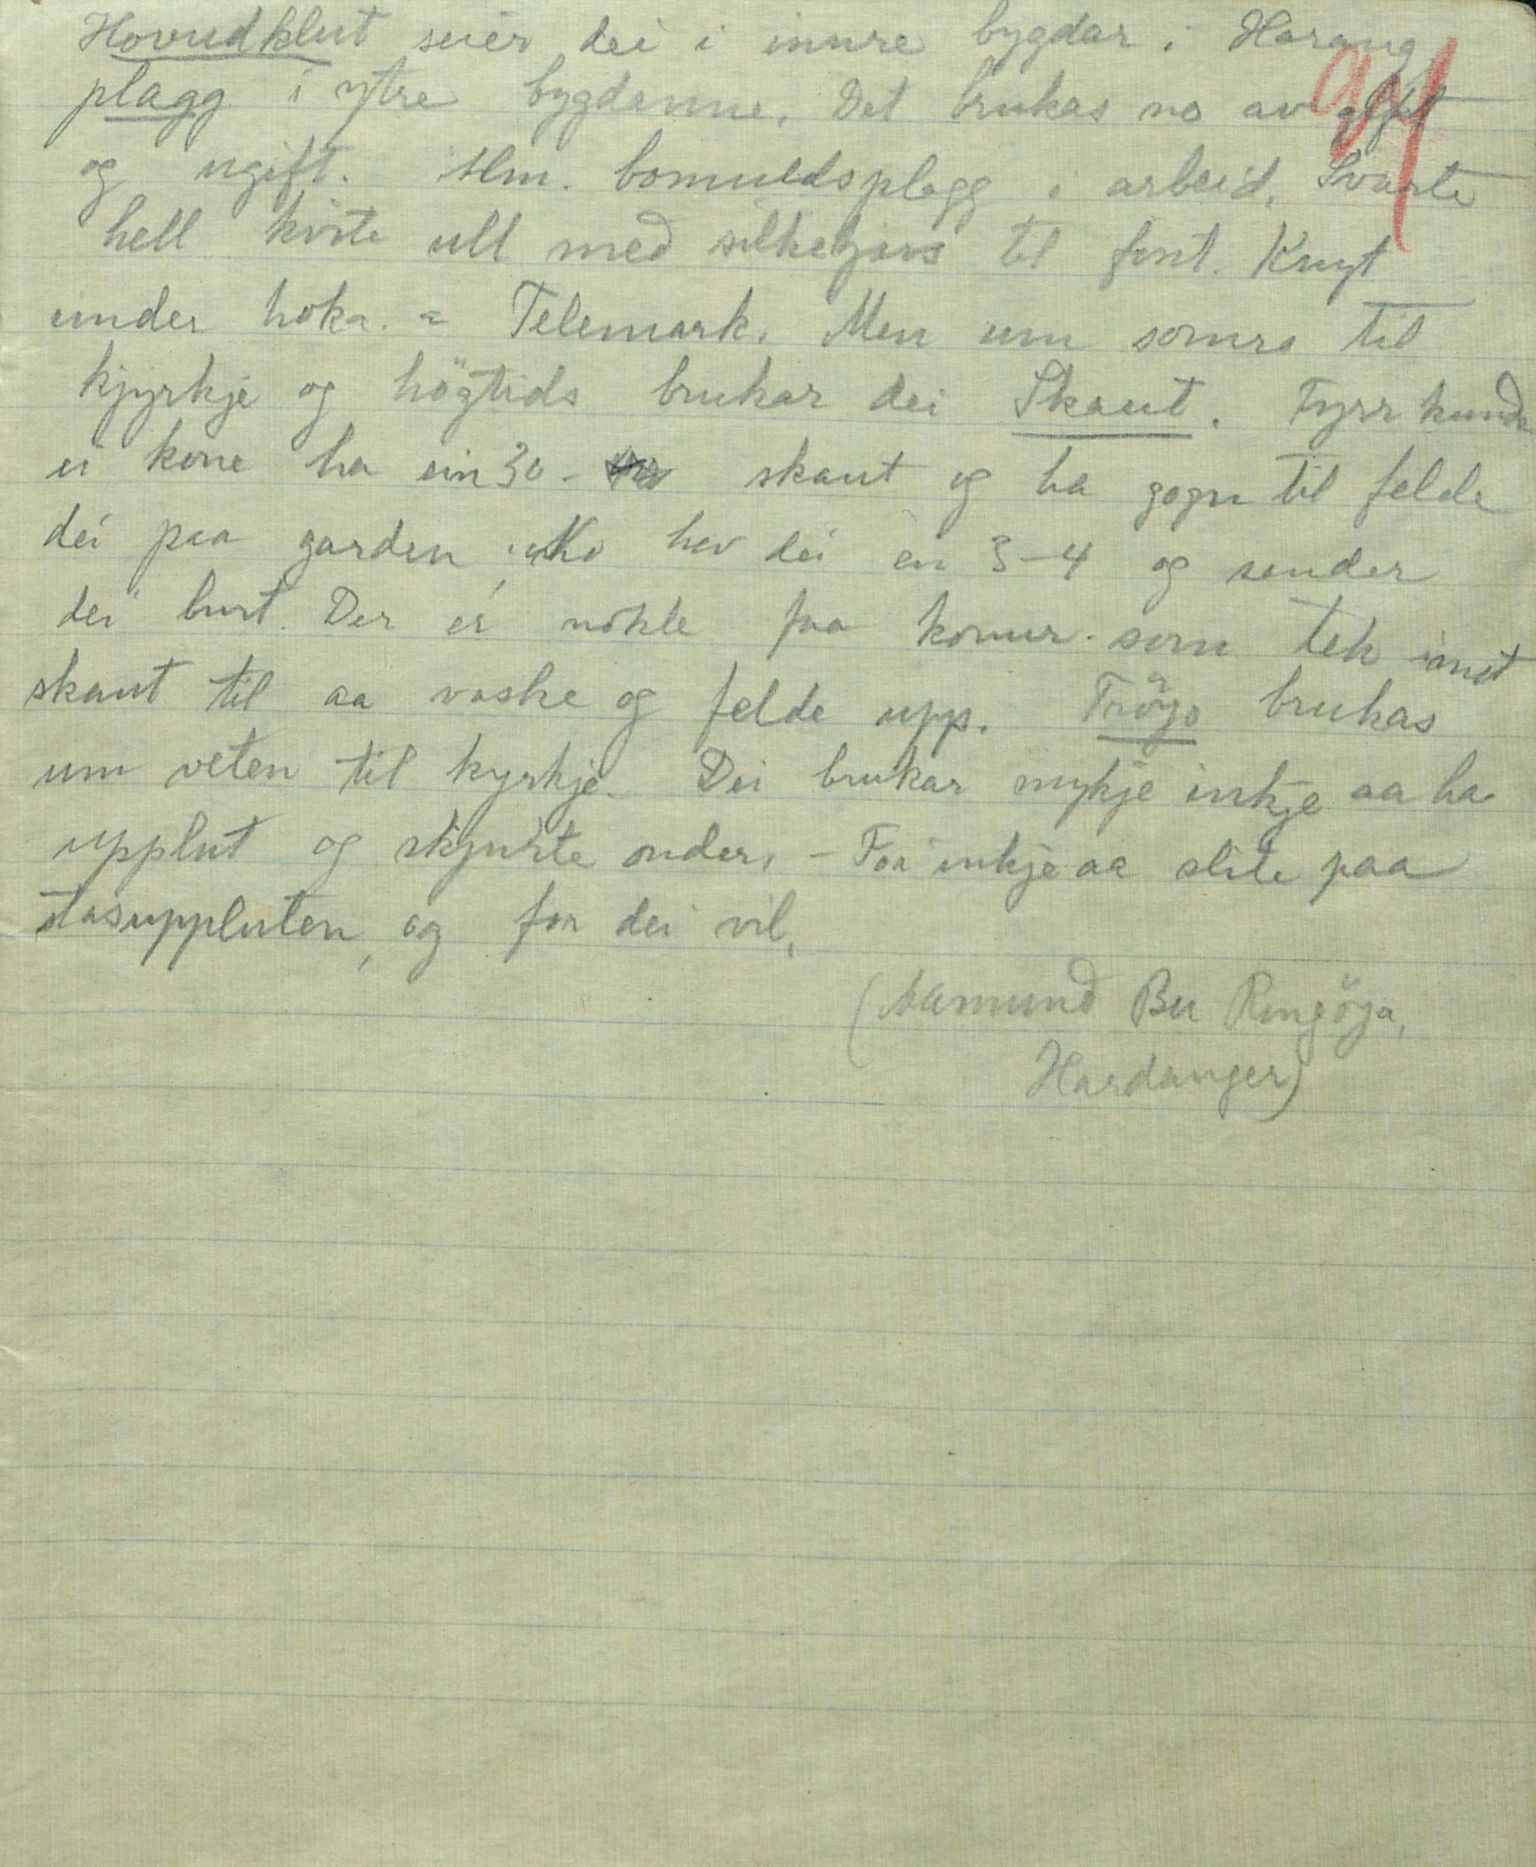 Hovudklut seier dei i innre bygdar i Harang,
plagg i ytre bygdenne. Det brukas no av gift
og ugift. Alm. bomuldsplagg i arbeid. Svarte
hell kvite ull med silkegars til fint. Knyt
under hoka. = Telemark. Men um somra til
kjyrkje og högtids brukar dei Skaut. Fyrr kunde
ei kone ha ein 30 - skaut og ha gogn til felde
dei paa garden. No hev dei ein 3-4 og sender
dei burt. Der er nokle faa konur som tek imot
skaut til aa vaske og felde upp. Tröga brukas
um veten til kyrkje. Dei brukar mykje inkje aa ha
upplut og skjurte onder, - Foi inkje aa slite paa
stasuppluten, og fon dei vil.
(Aamund Bu Ringöya,
Hardanger)
94